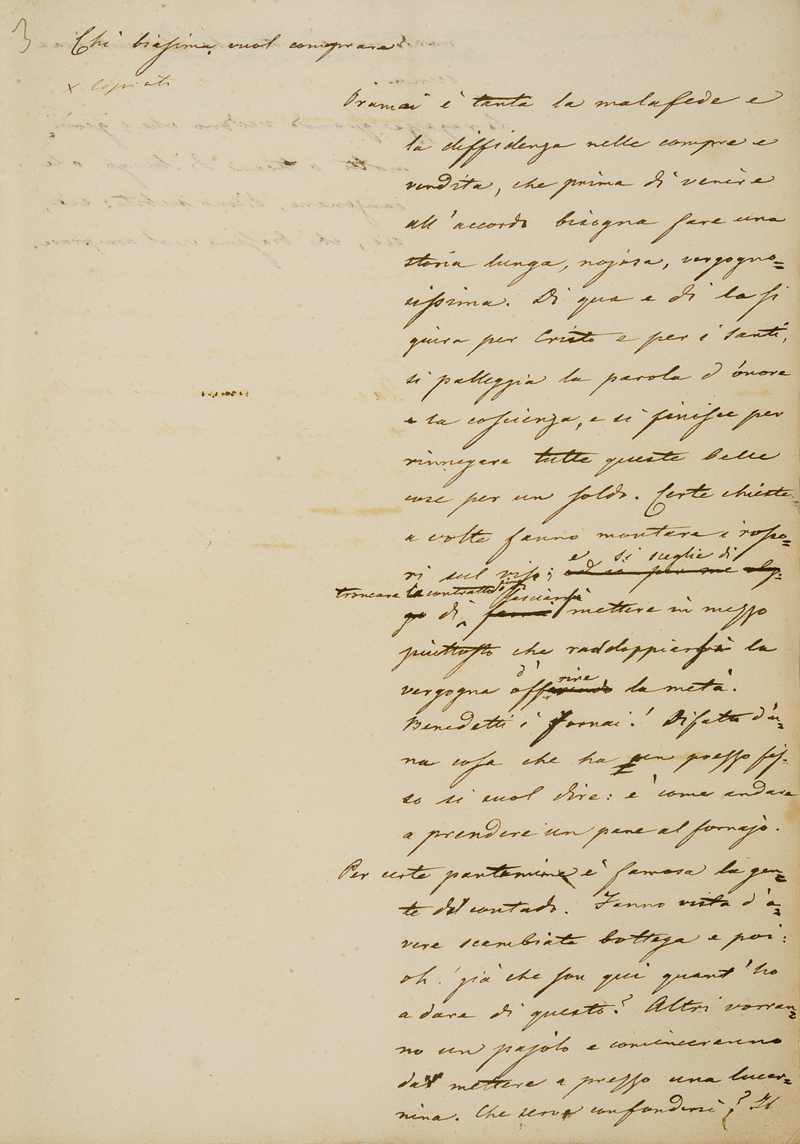 3
Chi biasima, vuol comprare
x Copiato
Oramai è tanta la malafede e
la diffidenza nelle compre e
vendita, che prima di venire
all'accordo bisogna fare una
storia lunga, nojosa, vergogno=
sissima. Di qua e di la si
giura per Cristo e per i Santi,
si palleggia la parola d'onore
e la coscienza, e si finisce per
rinnegare tutte queste belle
cose per un soldo. Certe chieste
a volte fanno montare i rosso=
ri sul viso; ed io per me sce
e si sceglie di
troncare il contratto
lasciarsi
go di mettere in mezzo
piuttosto che raddoppiarsi la
vergogna d'offrire la metà.
Benedetti i Fornai! Difatto d'u=
na cosa che ha un prezzo fis-
so si suol dire: è come andare
a prendere un pane al fornajo.
Per certe pantomime è famosa la gen=
te del contado. Fanno vista d'a=
vere scambiata bottega e poi:
oh! già che son qui quant'ho
a dare di questo? Altri vorran=
no un pajolo e cominceranno
dal mettere a prezzo una lucer=
nina. Che serve confondersi? Il